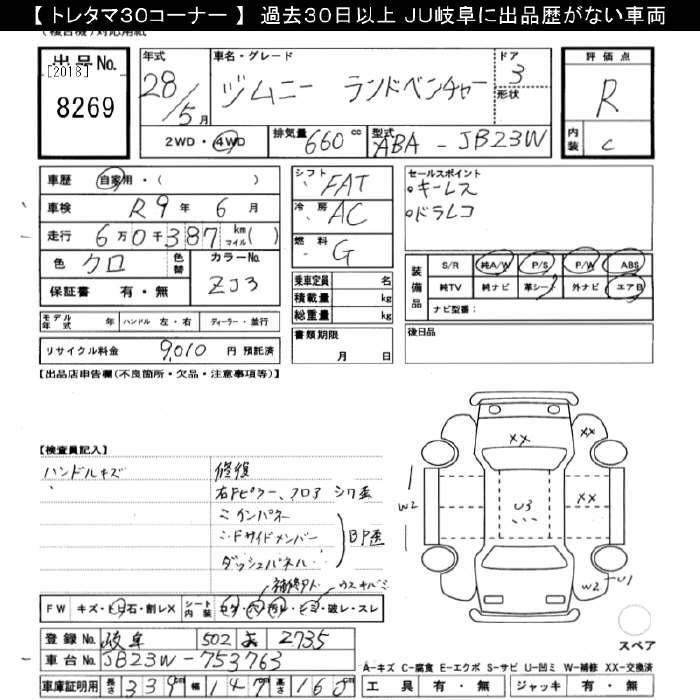 【トレタマ30コーナー】 過去30日以上 JU岐阜に出品歴がない車両
(複合機)対応用紙
出品No.
[2018]
8269
年式
28/5月
車名・グレード
ジムニー ランドベンチャー
ドア
3
形状
評価点
R
内装
C
2WD・4WD
排気量 660 cc
型式 ABA-JB23W
車歴 自家用・( )
車検 R9年6月
走行 6万0千387 km マイル( )
色 クロ
色替
カラーNo. ZJ3
保証書 有・無
シフト FAT
冷房 AC
燃料 G
乗車定員 名
積載量 kg
総重量 kg
セールスポイント
・キーレス
・ドラレコ
装備品
S/R 純A/W P/S P/W ABS
純TV 純ナビ 革シート 外ナビ エアB
ナビ型番:
モデル年式 年 ハンドル 左・右 ディーラー・並行
書類期限
月 日
後日品
リサイクル料金 9,010 円 預託済
【出品店申告欄(不良箇所・欠品・注意事項等)】
【検査員記入】
ハンドルキズ
修復
右Fピラー、フロア シワ歪
ミ インパネ
ミ Fサイドメンバー
BP歪
ダッシュパネル
補修アト
ウスキバミ
FW キズ・トビ石・割レX
シート内装 コゲ・穴・汚レ・シミ・破レ・スレ
XX
XX
XX
W2
U3
W2
U1
スペア
登録No. 岐阜 502 Z735
車台No. JB23W-753763
車庫証明用 長さ 339cm 幅 147cm 高さ 168cm
A-キズ C-腐食 E-エクボ S-サビ U-凹ミ W-補修 XX-交換済
工具 有・無 ジャッキ 有・無